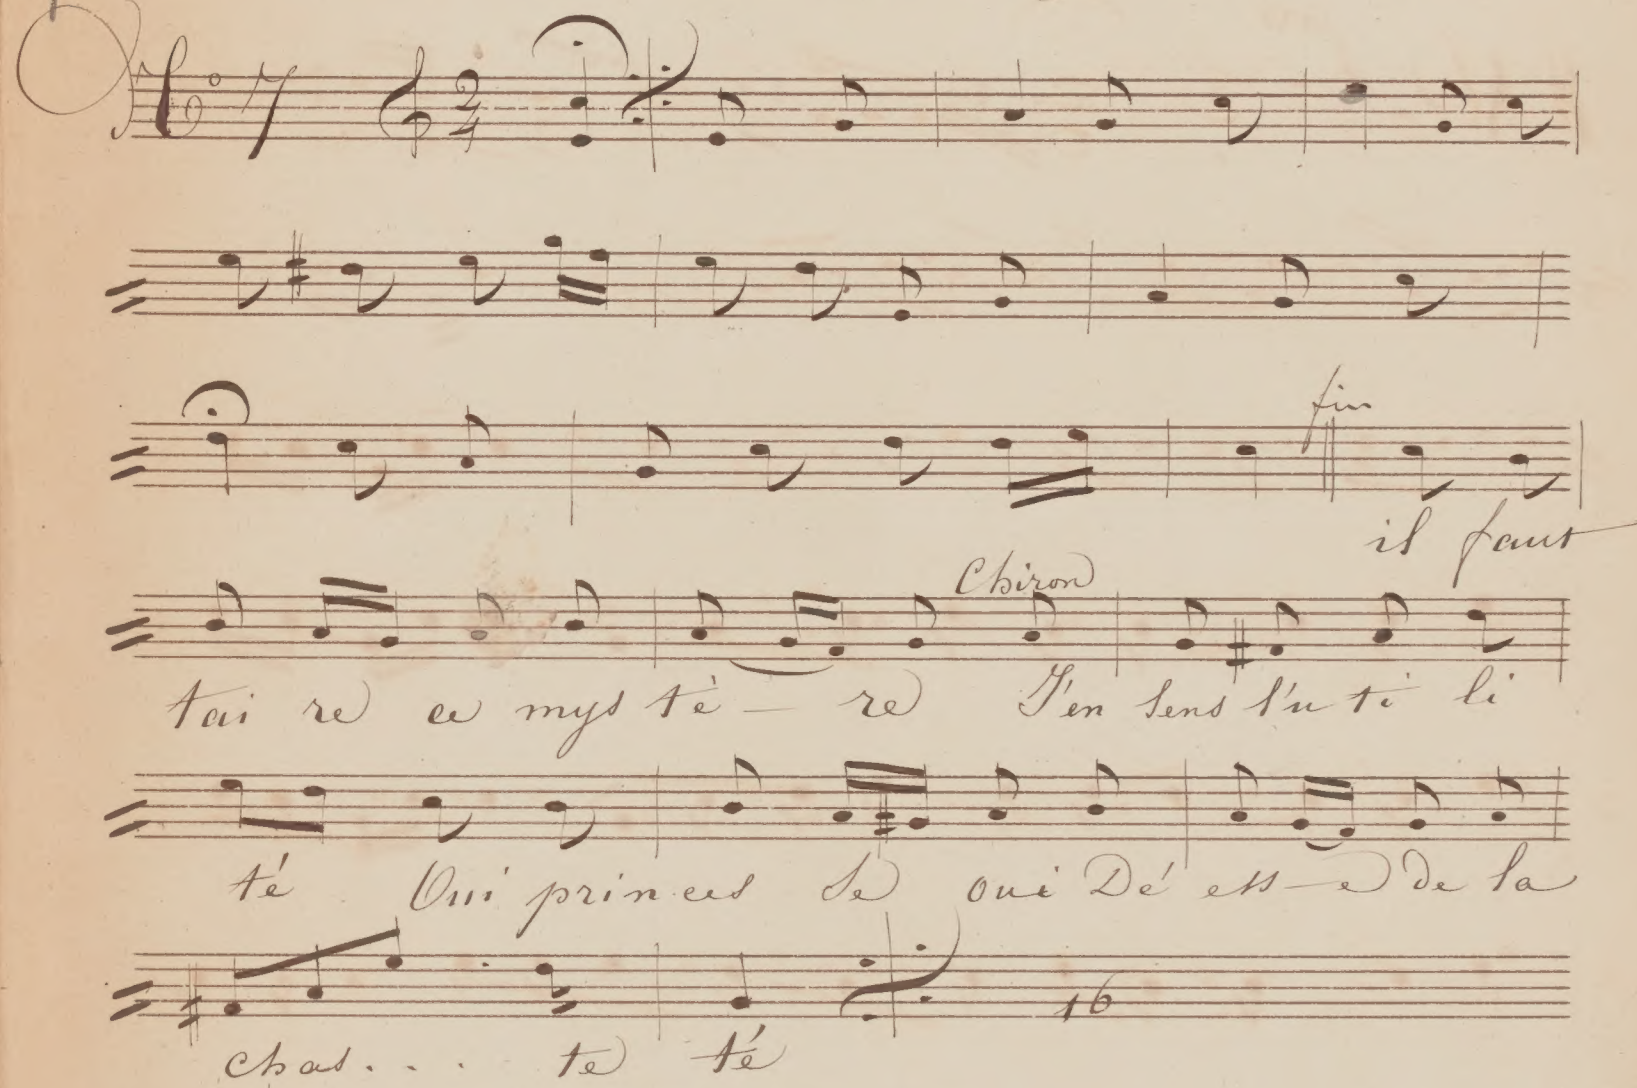 N.º 7 2/4
fin
il faut
Chiron
tai re ce mys tè — re J'en sens l'u ti li
té Oui prin ces se oui Dé ess — e de la
chas . . . te té
16